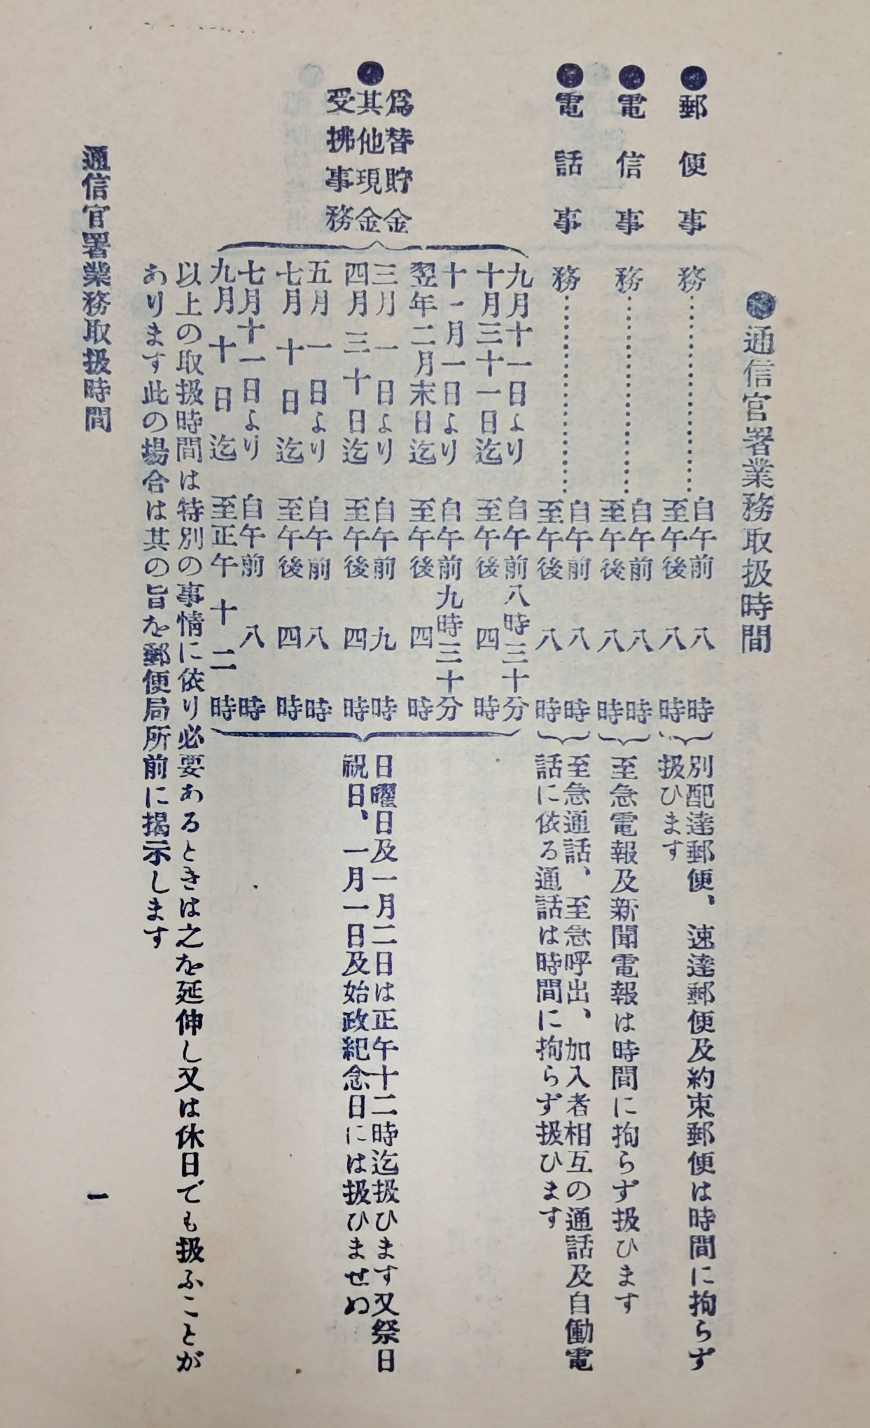 ●通信官署業務取扱時間
●郵便事務……………
自午前八時
至午後八時
別配達郵便、速達郵便及約束郵便は時間に拘らず
扱ひます
●電信事務……………
自午前八時
至午後八時
至急電報及新聞電報は時間に拘らず扱ひます
●電話事務……………
自午前八時
至午後八時
至急通話、至急呼出、加入者相互の通話及自働電
話に依る通話は時間に拘らず扱ひます
●
為替貯金
其他現金
受拂事務
九月十一日より
十月三十一日迄
自午前八時三十分
至午後四時
十一月一日より
翌年二月末日迄
自午前九時三十分
至午後四時
三月一日より
四月三十日迄
自午前九時
至午後四時
五月一日より
七月十日迄
自午前八時
至午後四時
七月十一日より
九月十日迄
自午前八時
至正午十二時
日曜日及一月二日は正午十二時迄扱ひます又祭日
祝日、一月一日及始政紀念日には扱ひませぬ
以上の取扱時間は特別の事情に依り必要あるときは之を延伸し又は休日でも扱ふことが
あります此の場合は其の旨を郵便局所前に掲示します
通信官署業務取扱時間
一